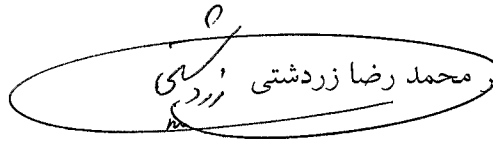 ر محمد رضا زردشتی